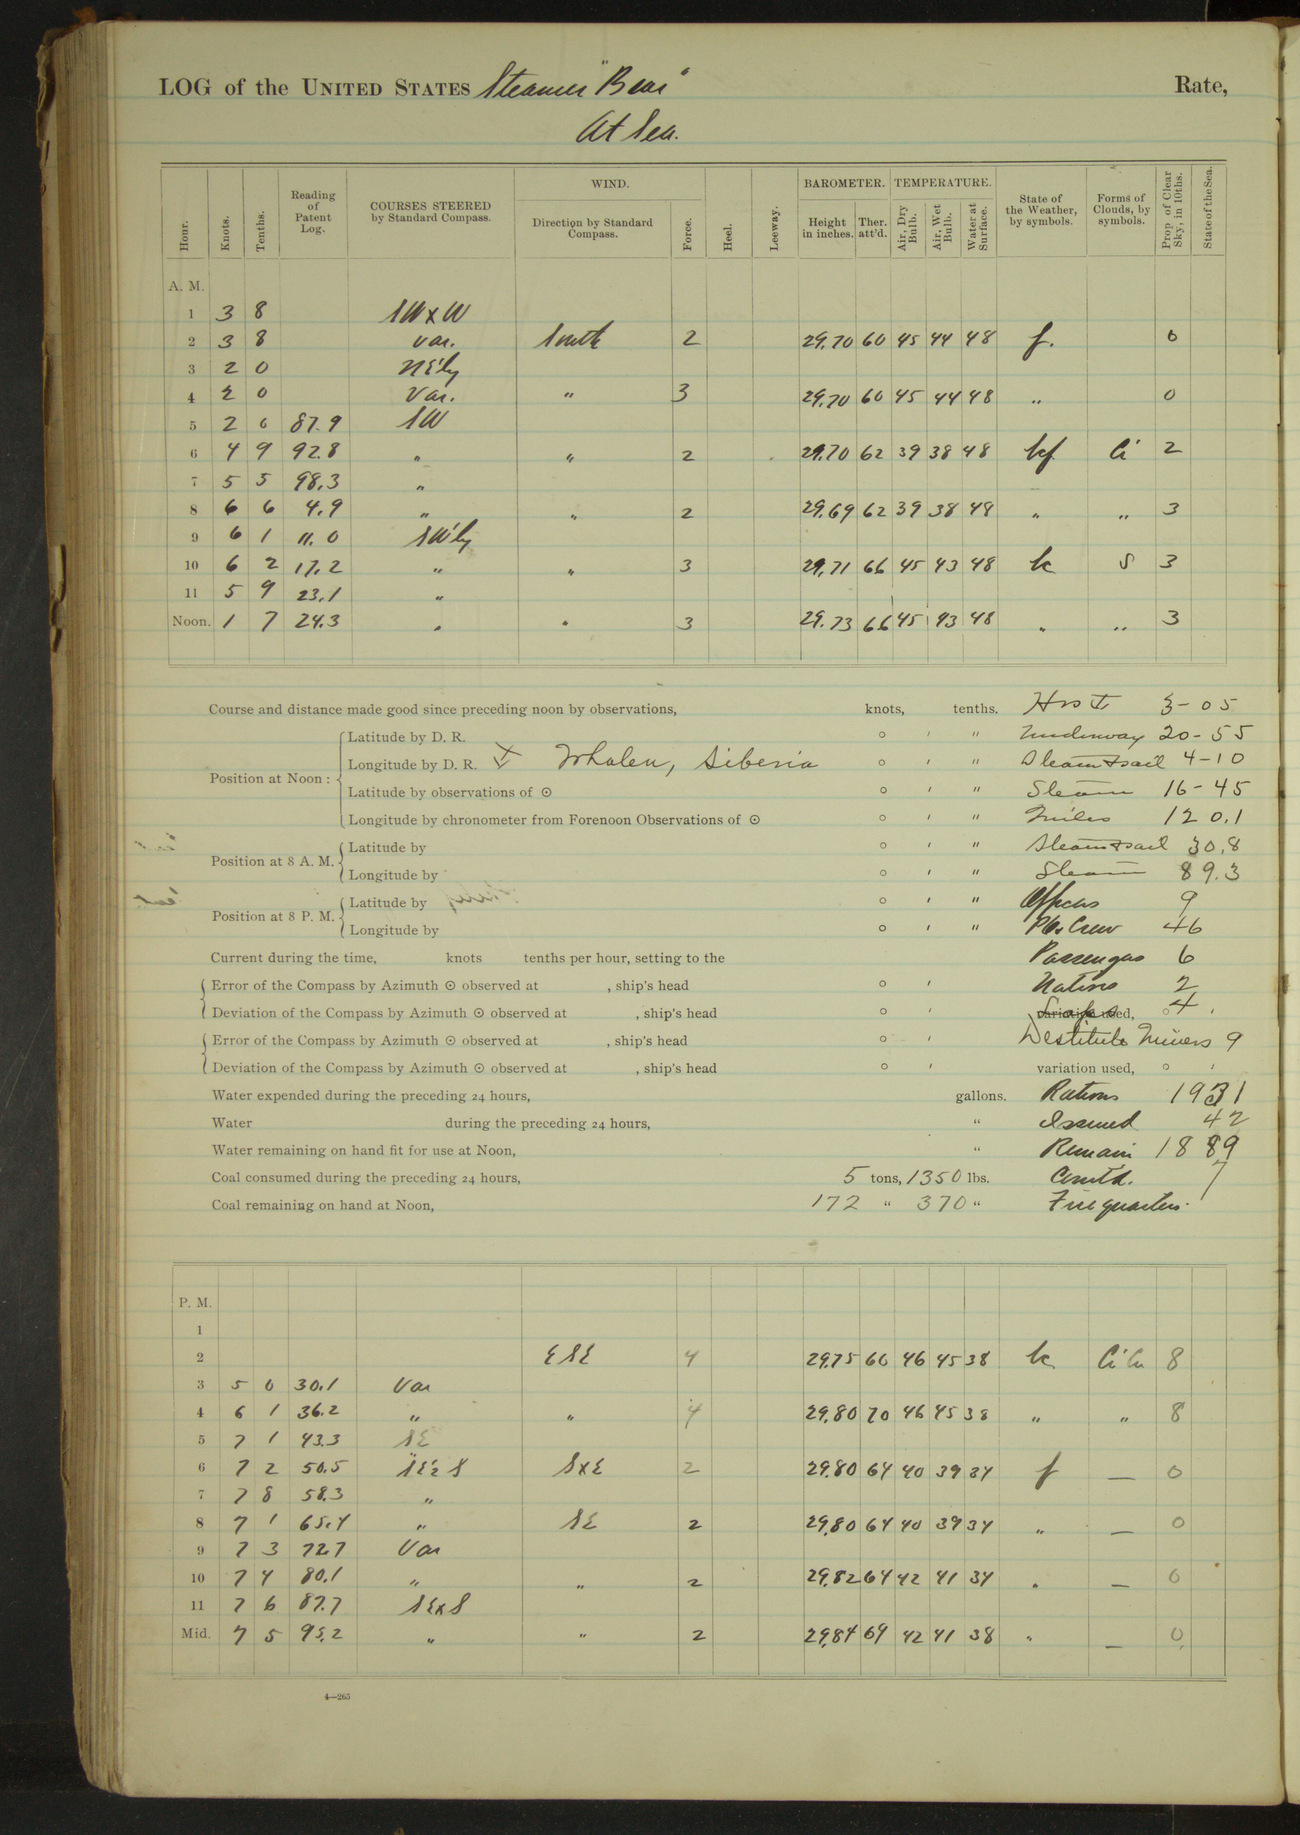 LOG of the UNITED STATES Steamer "Bear" Rate,
At Sea.
Hour. Knots. Tenths. Reading of Patent Log. COURSES STEERED by Standard Compass. WIND. Direction by Standard Compass. Force. Heel. Leeway. BAROMETER. Height in inches. Ther. att'd. TEMPERATURE. Air, Dry Bulb. Air, Wet Bulb. Water at Surface. State of the Weather, by symbols. Forms of Clouds, by symbols. Prop. of Clear Sky, in 10ths. State of the Sea.
A. M.
1 3 8 SW x W
2 3 8 Var. South 2 29.70 60 45 44 48 f. 0
3 2 0 NE'ly
4 2 0 Var. " 3 29.70 60 45 44 48 " 0
5 2 0 87.9 SW
6 4 9 92.8 " " 2 29.70 62 39 38 48 bf Ci 2
7 5 5 98.3 "
8 6 6 4.9 " " 2 29.69 62 39 38 48 " " 3
9 6 1 11.0 SW'ly
10 6 2 17.2 " " 3 29.71 66 45 43 48 bc S 3
11 5 9 23.1 "
Noon. 1 7 24.3 " " 3 29.73 66 45 43 48 " " 3
Course and distance made good since preceding noon by observations, knots, tenths. 3-05
Position at Noon : Latitude by D. R. ° ' " Underway 20-55
Longitude by D. R. Whalen, Siberia ° ' " Steam & sail 4-10
Latitude by observations of ☉ ° ' " Steam 16-45
Longitude by chronometer from Forenoon Observations of ☉ ° ' " Miles 120.1
Position at 8 A. M. Latitude by ° ' " Steam & sail 30.8
Longitude by ° ' " Steam 89.3
Position at 8 P. M. Latitude by ° ' " Officers 9
Longitude by ° ' " Crew 46
Current during the time, knots tenths per hour, setting to the Passengers 6
Error of the Compass by Azimuth ☉ observed at , ship's head ° ' Natives 2
Deviation of the Compass by Azimuth ☉ observed at , ship's head ° ' variation used, ° 4 '
Error of the Compass by Azimuth ☉ observed at , ship's head ° ' Destitute Miners 9
Deviation of the Compass by Azimuth ☉ observed at , ship's head ° ' variation used, ° '
Water expended during the preceding 24 hours, gallons. Rations 1931
Water during the preceding 24 hours, " Issued 42
Water remaining on hand fit for use at Noon, " Remain 1889
Coal consumed during the preceding 24 hours, 5 tons, 1350 lbs. Com'td. 7
Coal remaining on hand at Noon, 172 " 370 " Fire quarters.
P. M.
1
2 ESE 4 29.75 60 46 45 38 bc Ci Cu 8
3 5 0 30.1 Var
4 6 1 36.2 " " 4 29.80 70 46 45 38 " " 8
5 7 1 43.3 SE
6 7 2 50.5 S x E 2 29.80 64 40 39 34 f — 0
7 7 8 58.3 "
8 7 1 65.4 " SE 2 29.80 64 40 39 34 " — 0
9 7 3 72.7 Var
10 7 4 80.1 " " 2 29.82 64 42 41 34 " — 0
11 7 6 87.7 SE x S
Mid. 7 5 95.2 " " 2 29.84 69 42 41 38 " — 0
4—265